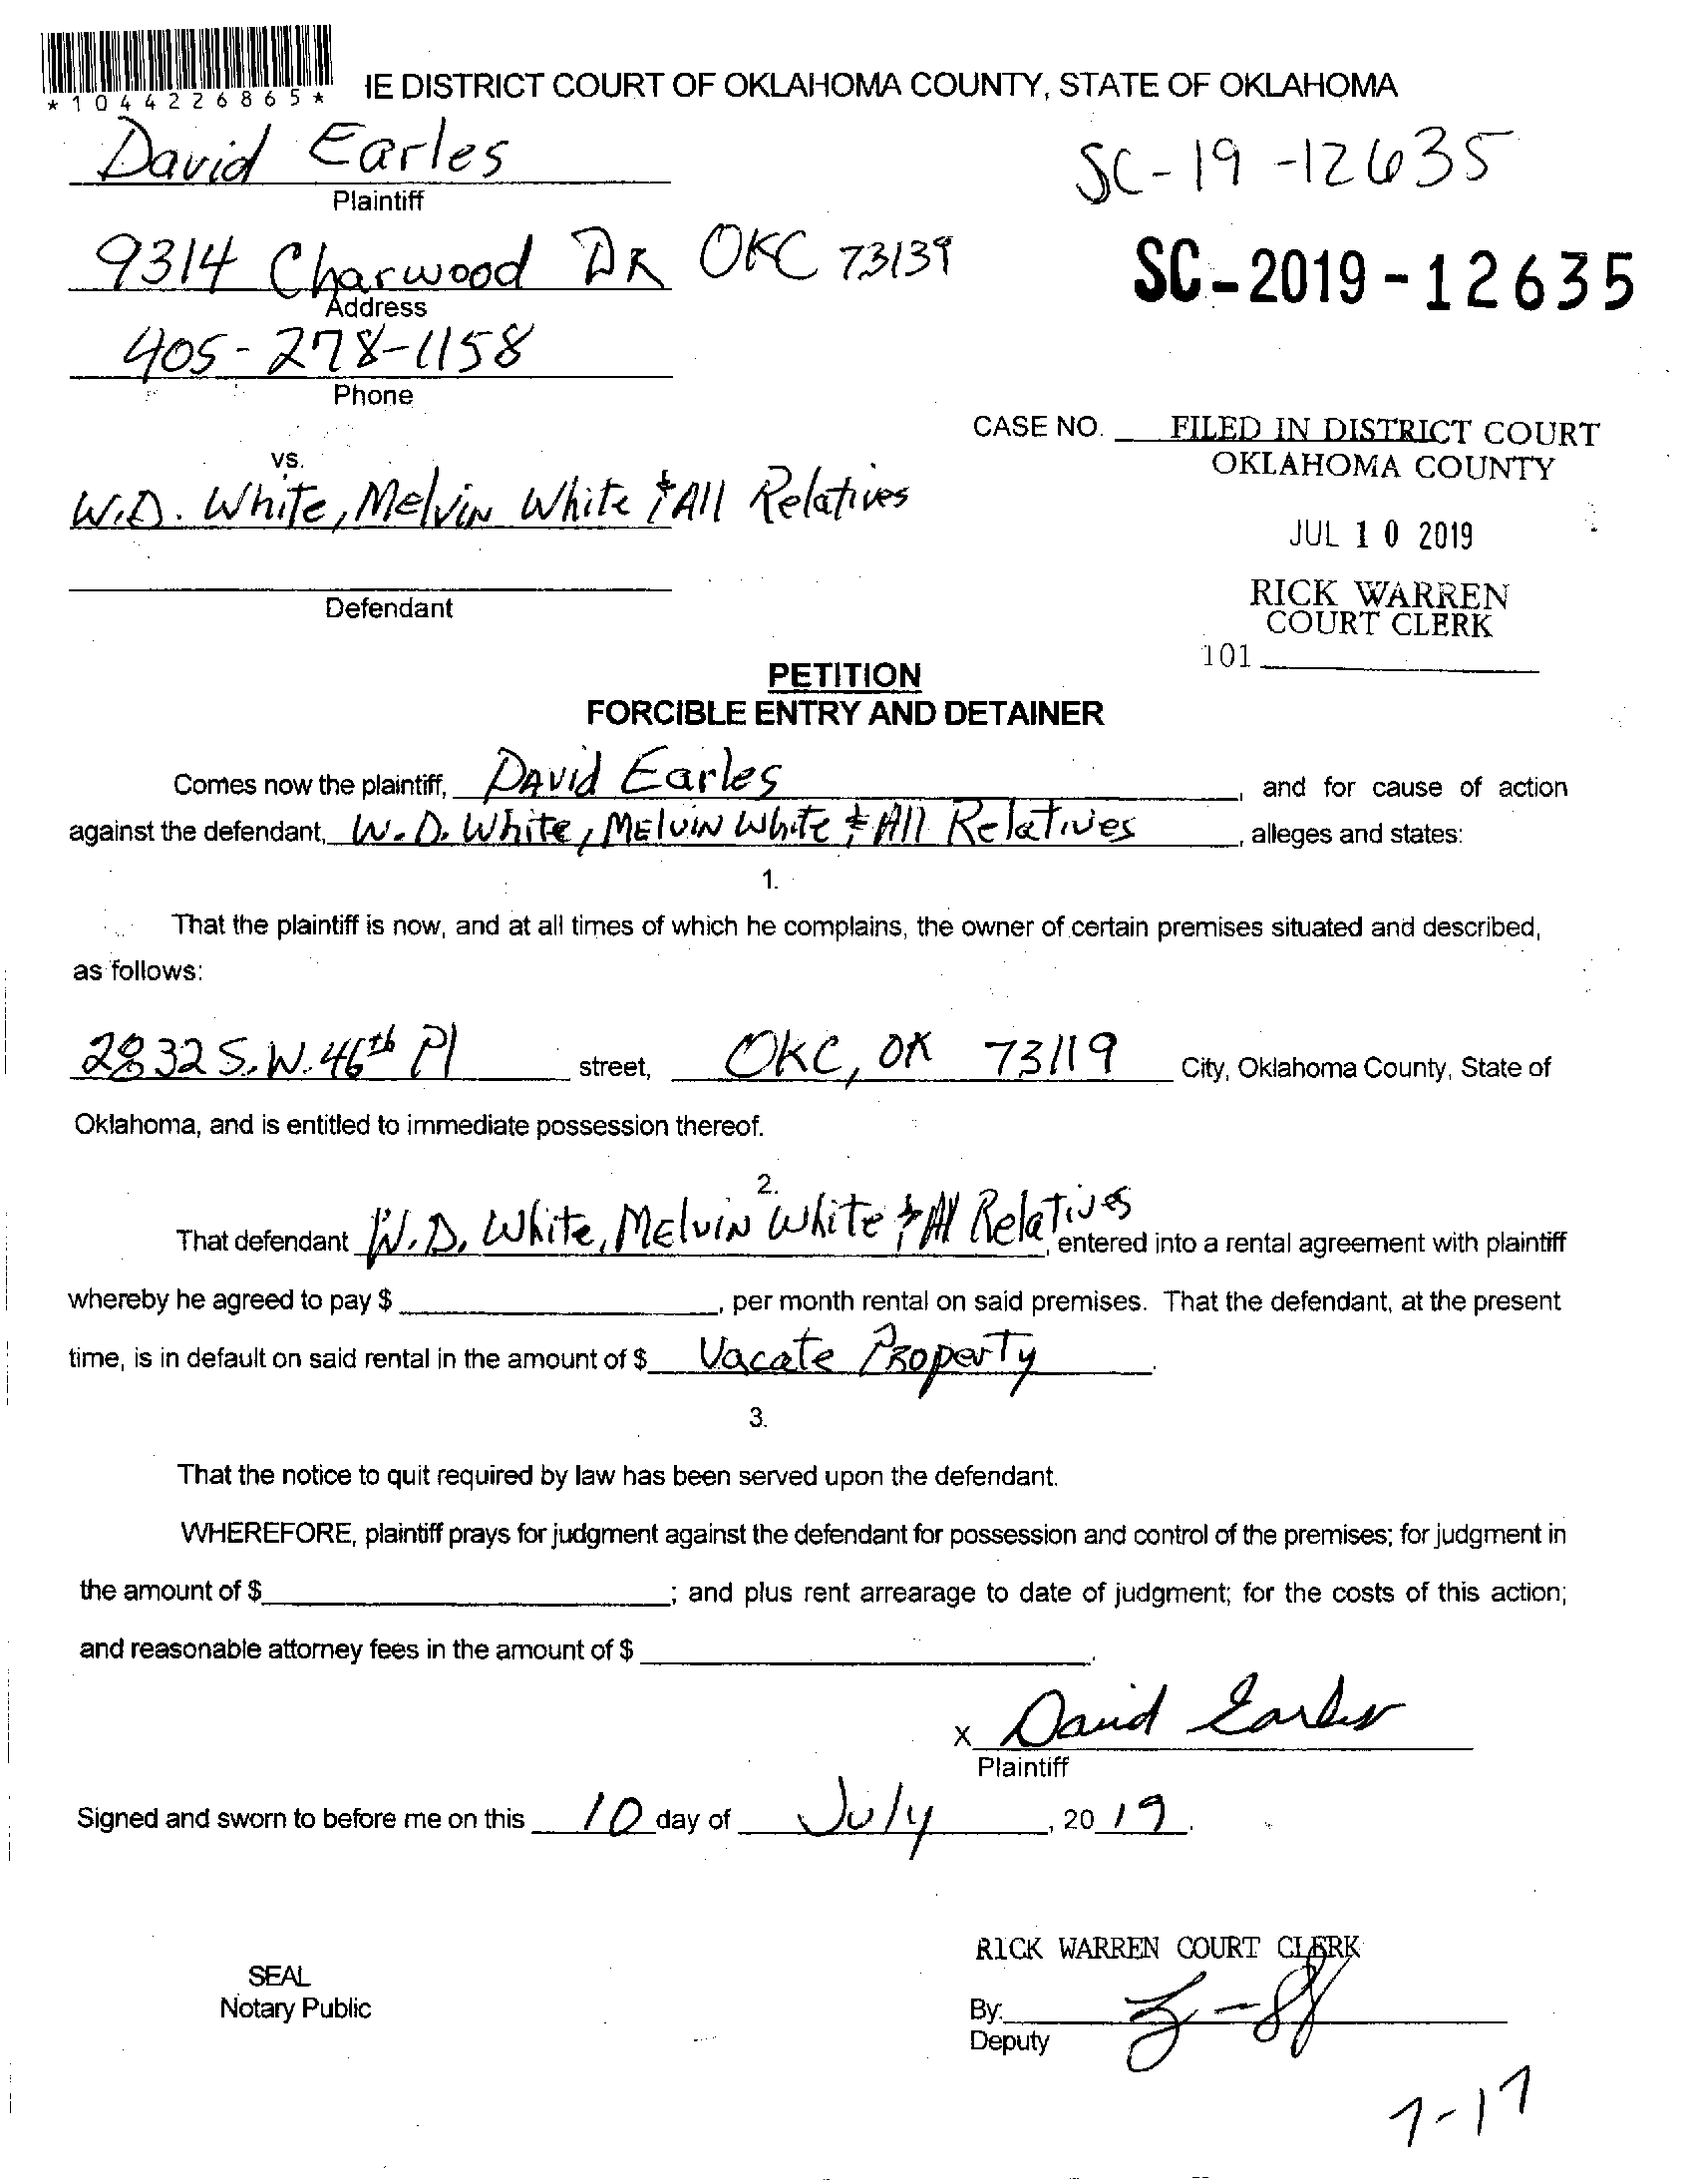 *1044226865*
IE DISTRICT COURT OF OKLAHOMA COUNTY, STATE OF OKLAHOMA
David Earles
Plaintiff
SC-19-12635
9314 Charwood DR OKC 73139
Address
SC-2019-12635
405-278-1158
Phone
CASE NO.
FILED IN DISTRICT COURT
OKLAHOMA COUNTY
vs.
W.D. White, Melvin White & All Relatives
JUL 10 2019
Defendant
RICK WARREN
COURT CLERK
101
PETITION
FORCIBLE ENTRY AND DETAINER
Comes now the plaintiff, DAvid Earles, and for cause of action
against the defendant, W.D. White, Melvin White & All Relatives, alleges and states:
1.
That the plaintiff is now, and at all times of which he complains, the owner of certain premises situated and described,
as follows:
2832 S.W. 46th Pl street, OKC, OK 73119 City, Oklahoma County, State of
Oklahoma, and is entitled to immediate possession thereof.
2.
That defendant W.D. White, Melvin White & All Relatives, entered into a rental agreement with plaintiff
whereby he agreed to pay $, per month rental on said premises. That the defendant, at the present
time, is in default on said rental in the amount of $ Vacate Property.
3.
That the notice to quit required by law has been served upon the defendant.
WHEREFORE, plaintiff prays for judgment against the defendant for possession and control of the premises; for judgment in
the amount of $; and plus rent arrearage to date of judgment; for the costs of this action;
and reasonable attorney fees in the amount of $.
X David Earles
Plaintiff
Signed and sworn to before me on this 10 day of July, 2019.
RICK WARREN COURT CLERK
SEAL
Notary Public
By:
Deputy
7-17